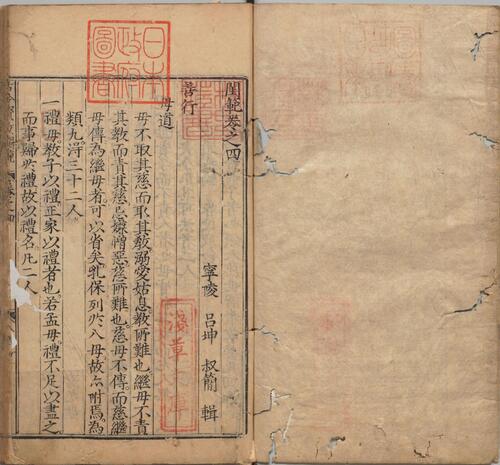 閨範卷之四
寧陵 呂坤 叔簡 輯
善行
母道
母不取其慈而取其教溺愛姑息教所難也繼母不責
其教而責其慈忌嫌憎惡慈所難也慈母不傳而慈繼
母傳為繼母者可以省矣乳保列於八母故亦附焉為
類九得三十二人
一禮母教子以禮正家以禮者也若孟母禮不足以盡之
而事歸於禮故以禮名凡二人
日本
政府
圖書